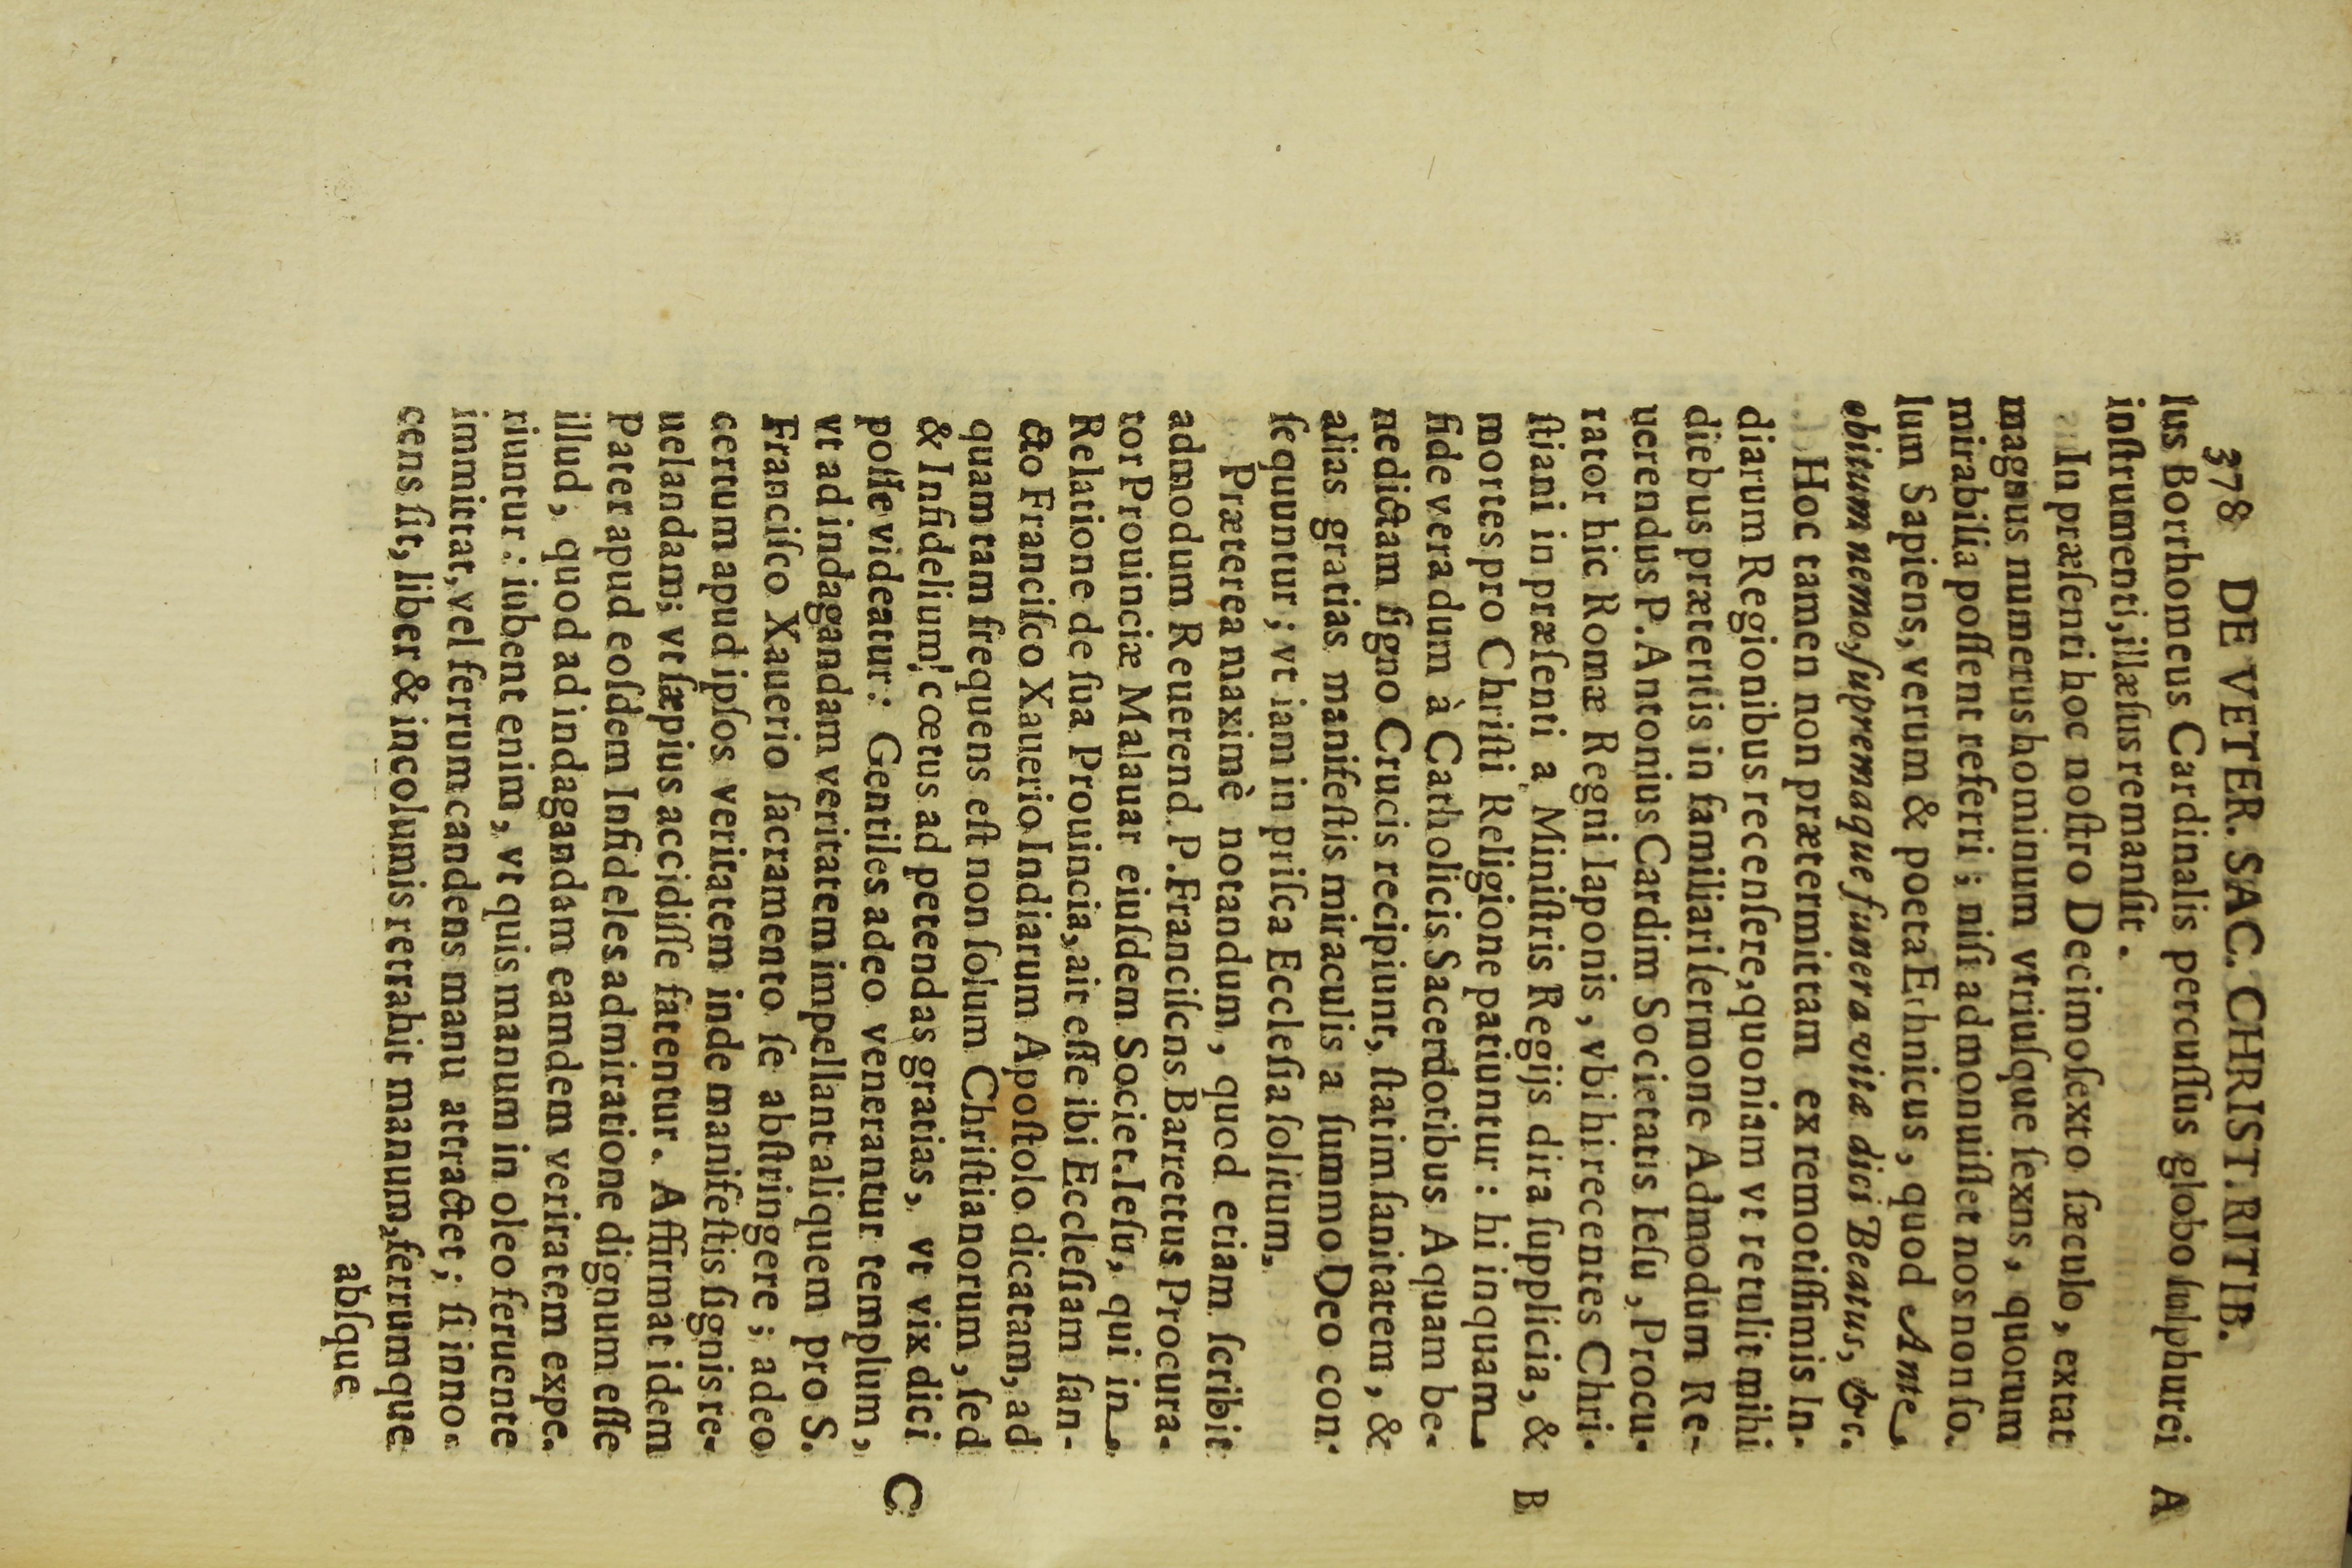 378 DE VETER. SAC. CHRIST. RITIB.
lus Borrhomeus Cardinalis percuſſus globo ſulphurei A
inſtrumenti, illæſus remanſit.
In præſenti hoc noſtro Decimoſexto ſæculo, extat
magnus numerus hominum vtriuſque ſexns, quorum
mirabilia poſſent referri; niſi admonuiſſet nos non ſo-
lum Sapiens, verum & poeta Ethnicus, quod Ante
obitum nemo, ſupremaque funera vitæ dici Beatus, &c.
Hoc tamen non prætermittam ex remotiſſimis In-
diarum Regionibus recenſere, quoniam vt retulit mihi
diebus præteritis in familiari ſermone Admodum Re-
uerendus P. Antonius Cardim Societatis Ieſu, Procu-
rator hic Romæ Regni Iaponis, vbi hi recentes Chri-
ſtiani in præſenti a Miniſtris Regijs dira ſupplicia, & B
mortes pro Chriſti Religione patiuntur: hi inquam
fide vera dum à Catholicis Sacerdotibus Aquam be-
nedictam ſigno Crucis recipiunt, ſtatim ſanitatem, &
alias gratias manifeſtis miraculis a ſummo Deo con-
ſequuntur; vt iam in priſca Eccleſia ſolitum.
Præterea maximè notandum, quod etiam ſcribit
admodum Reuerend. P. Franciſcns Barrettus Procura-
tor Prouinciæ Malauar eiuſdem Societ. Ieſu, qui in
Relatione de ſua Prouincia, ait eſſe ibi Eccleſiam ſan-
cto Franciſco Xauerio Indiarum Apoſtolo dicatam, ad
quam tam frequens eſt non ſolum Chriſtianorum, ſed
& Infidelium cœtus ad petendas gratias, vt vix dici
poſſe videatur: Gentiles adeo venerantur templum, C
vt ad indagandam veritatem impellant aliquem pro S.
Franciſco Xauerio ſacramento ſe abſtringere; adeo
certum apud ipſos veritatem inde manifeſtis ſignis re-
uelandam; vt ſæpius accidiſſe fatentur. Affirmat idem
Pater apud eoſdem Infideles admiratione dignum eſſe
illud, quod ad indagandam eamdem veritatem expe-
riuntur: iubent enim, vt quis manum in oleo feruente
immittat, vel ferrum candens manu attractet; ſi inno-
cens ſit, liber & incolumis retrahit manum, ferrumque
abſque